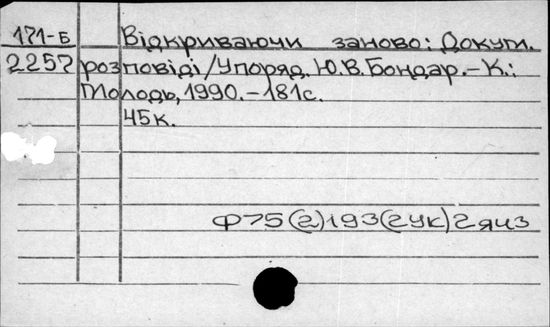 171-Б Відкриваючи заново: Докум.
2257 розповіді/Упоряд. Ю.В.Бондар.-К.:
Молодь, 1990.-181с.
45к.
Ф75(2)193(2УК)2яиз